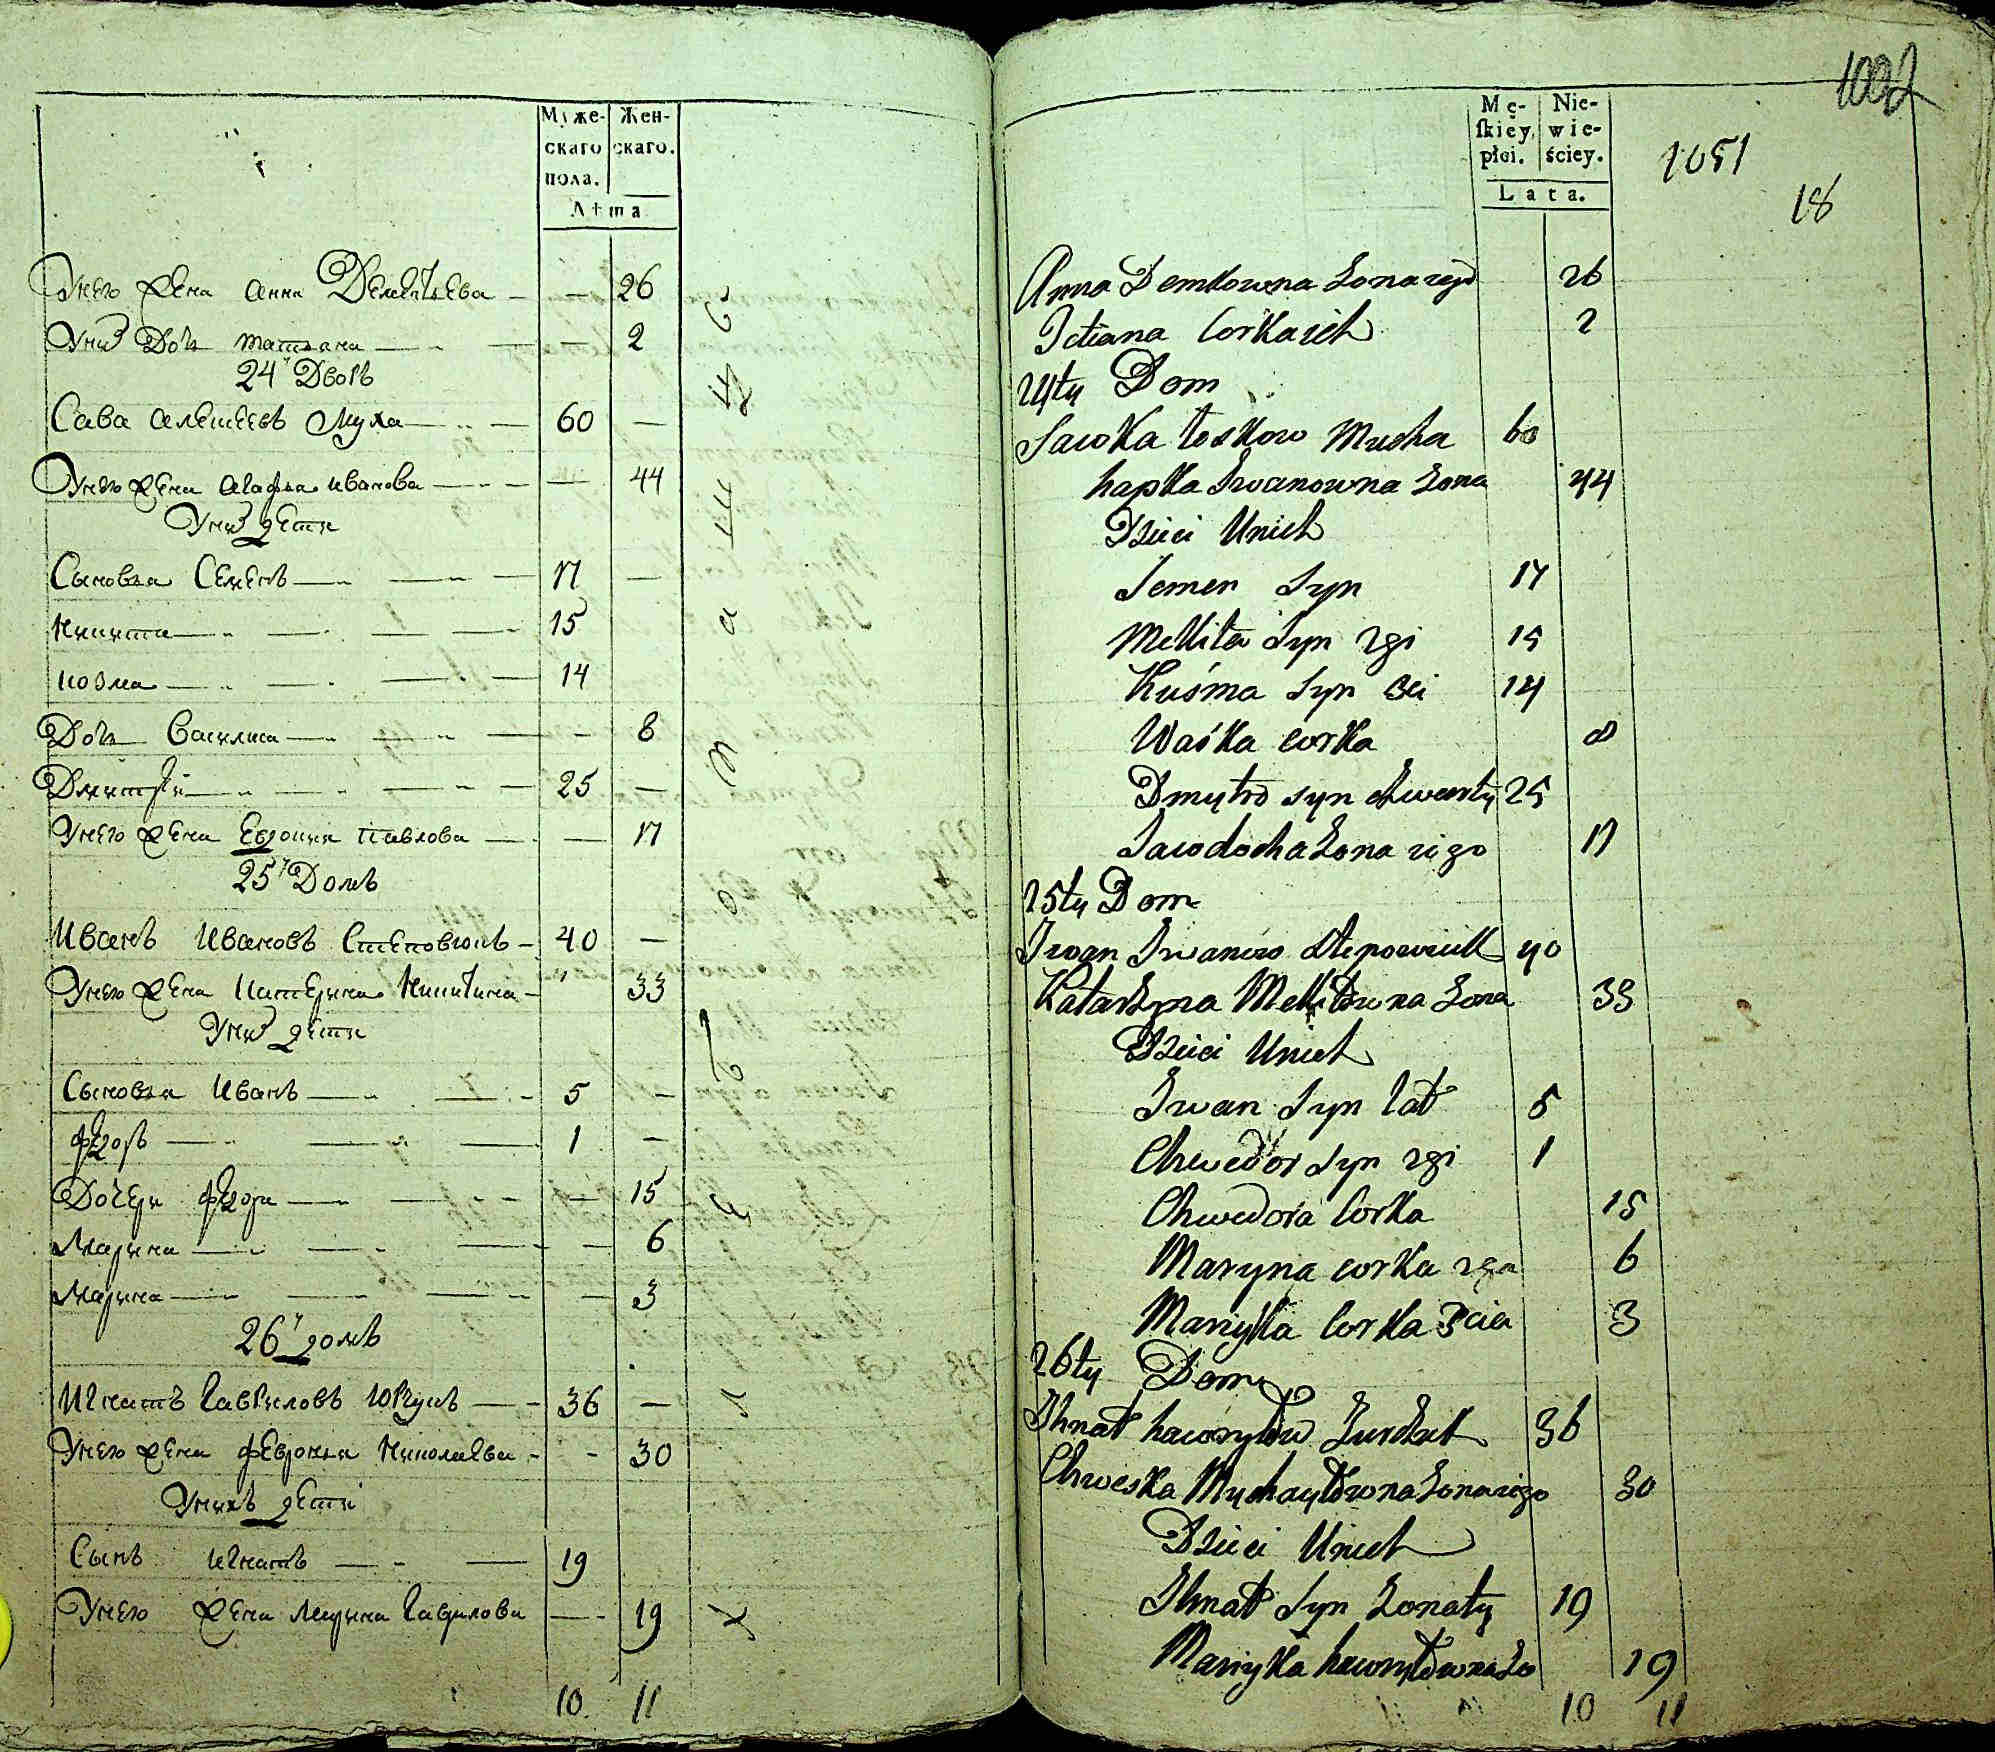 Муже-
скаго
пола.
Жен-
скаго.
Лѣта
Унего жена анна Дементьева — — 26
Уних Дочь татьяна — — 2
24й Дворъ
Сава алексеевъ Муха — 60 —
Унего жена агафья иванова — — 44
Уних дети
Сыновья Семенъ — 17 —
Никита — 15
козма — 14
Дочь Василиса — — 8
Дмитрей — 25 —
Унего жена Евдокия павлова — — 17
25й Домъ
Иванъ Ивановъ Степовюкъ — 40 —
Унего жена катерина Никитина — 33
Уних дети
Сыновья Иванъ — 5 —
федоръ — 1 —
Дочери федора — — 15
Марина — — 6
Марина — — 3
26й домъ
Игнатъ гавриловъ — 36 —
Унего жена февронья николаева — - 30
Унихъ дети
Сынъ игнатъ — 19
Унего жена марина гаврилова — 19
10 11
1002
Mę-
skiey
płci.
Nie-
wie-
ściey.
Lata.
1051
18
Anna Demkowna Zona iego 26
Tetiana Corka ich 2
24ty Dom
Sawka łeskow Mucha 60
hapka Iwanowna Zona 44
Dzieci Unich
Semen Syn 17
Mekita Syn 2gi 15
Kuśma Syn 3ci 14
Waśka corka 8
Dmytro syn czwarty 25
Iawdocha Zona iego 17
25ty Dom
Iwan Iwanow Stepowiuk 40
Katarzyna Mekitowna Zona 33
Dzieci Unich
Iwan Syn lat 5
Chwedor Syn 2gi 1
Chwedora Corka 15
Maryna corka 2ga 6
Maryka Corka 3cia 3
26ty Dom
Ihnat hawryłow 36
Chweska Mychayłowna Zona iego 30
Dzieci Unich
Ihnat Syn Zonaty 19
Maryka hawryłowna Zo 19
10 11